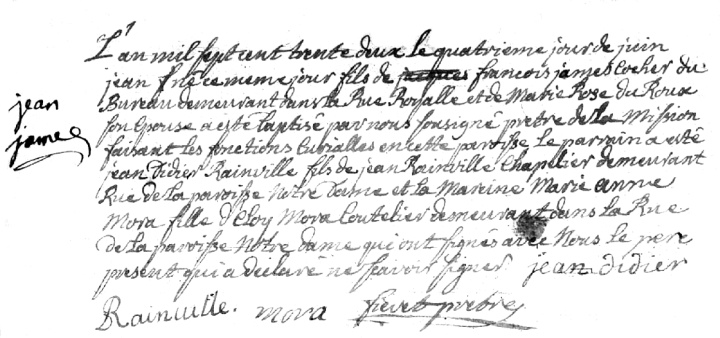 L'an mil sept cent trente deux le quatrieme jour de juin
jean né ce meme jour fils de jacques francois james Cocher du
jean
james
Bureau demeurant dans la Rue Royalle et de Marie Rose du Roux
son Epouse a esté baptisé par nous sousigné pretre de la Mission
faisant les fonctions Curialles en cette paroisse le parrain a été
jean Didier Rainville fils de jean Rainville Chapelier demeurant
Rue de la paroisse Notre Dame et la Mareine Marie anne
Mora fille d'Eloy Mora Coutelier demeurant dans la Rue
de la paroisse Notre dame qui ont signés avec Nous le pere
present qui a déclaré ne scavoir signer jean didier
Rainville. mora fievet pretre